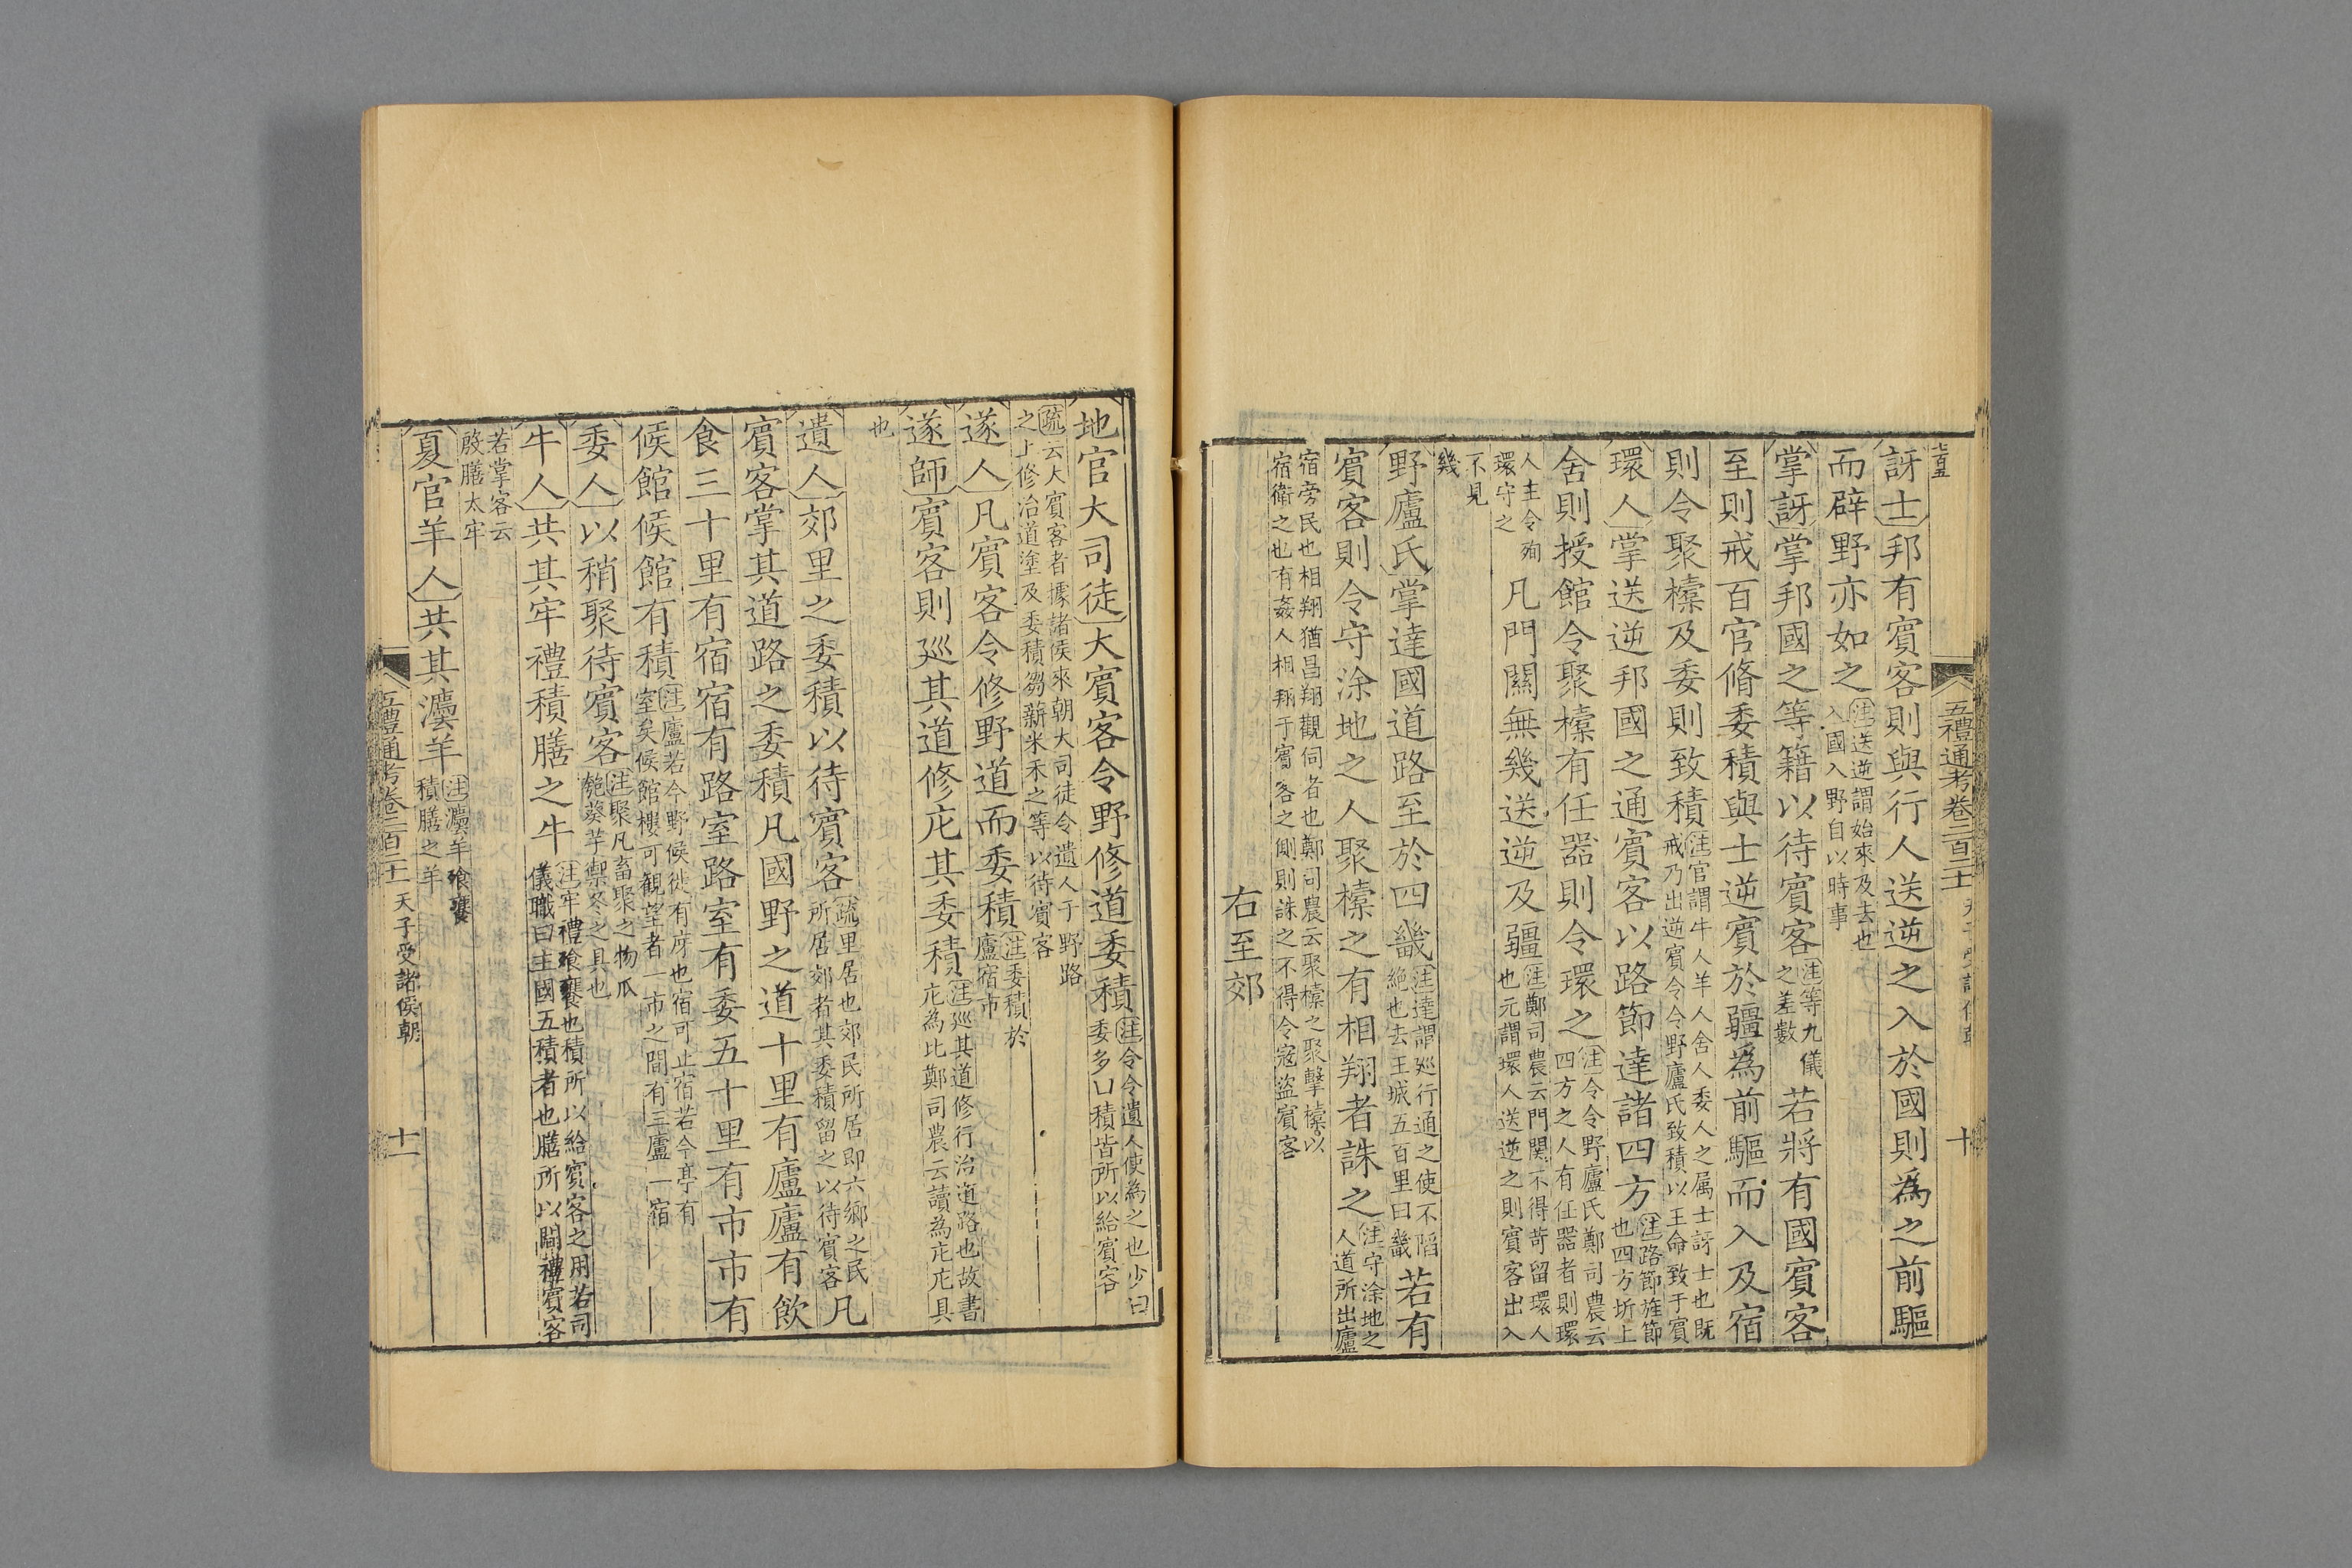 七百五
五禮通考卷二百二十 天子受諸侯朝 十
訝士邦有賓客則與行人送逆之入於國則為之前驅
而辟野亦如之注送逆謂始來及去也入國入野自以時事
掌訝掌邦國之等籍以待賓客注等九儀之差數若將有國賓客
至則戒百官脩委積與士逆賓於疆為前驅而入及宿
則令聚㯓及委則致積注官謂牛人羊人舍人委人之属士訝士也既戒乃出逆賓令令野廬氏致積以王命致于賓
環人掌送逆邦國之通賓客以路節達諸四方注路節旌節也四方圻上
舍則授館令聚㯓有任器則令環之注令令野廬氏鄭司農云四方之人有任器者則環
人主令殉環守之凡門關無幾送逆及疆注鄭司農云門關不得苛留環人也元謂環人送逆之則賓客出入
不見幾
野廬氏掌達國道路至於四畿注達謂巡行通之使不陷絕也去王城五百里曰畿若有
賓客則令守涂地之人聚㯓之有相翔者誅之注守涂地之人道所出廬
宿旁民也相翔猶昌翔觀伺者也鄭司農云聚㯓之聚擊㯓以宿衛之也有姦人相翔于賓客之側則誅之不得令寇盜賓客
右至郊
地官大司徒大賓客令野修道委積注令令遺人使為之也少曰委多曰積皆所以給賓客
疏云大賓客者據諸侯來朝大司徒令遺人于野路之上修治道塗及委積芻薪米禾之等以待賓客
遂人凡賓客令修野道而委積注委積於廬宿市
遂師賓客則巡其道修庀其委積注巡其道修行治道路也故書庀為比鄭司農云讀為庀庀具
也
遺人郊里之委積以待賓客疏里居也郊民所居即六鄉之民所居郊者其委積留之以待賓客凡
賓客掌其道路之委積凡國野之道十里有廬廬有飲
食三十里有宿宿有路室路室有委五十里有市市有
候館候館有積注廬若今野候徙有庌也宿可止宿若今亭有室矣候館樓可観望者一市之間有三廬一宿
委人以稍聚待賓客注聚凡畜聚之物瓜瓠葵芋禦冬之具也
牛人共其牢禮積膳之牛注牢禮飧饔也積所以給賓客之用若司儀職曰主國五積者也膳所以間禮賓客
若掌客云殷膳太牢
夏官羊人共其灋羊注灋羊飧饔積膳之羊
五禮通考卷二百二十 天子受諸侯朝 十一